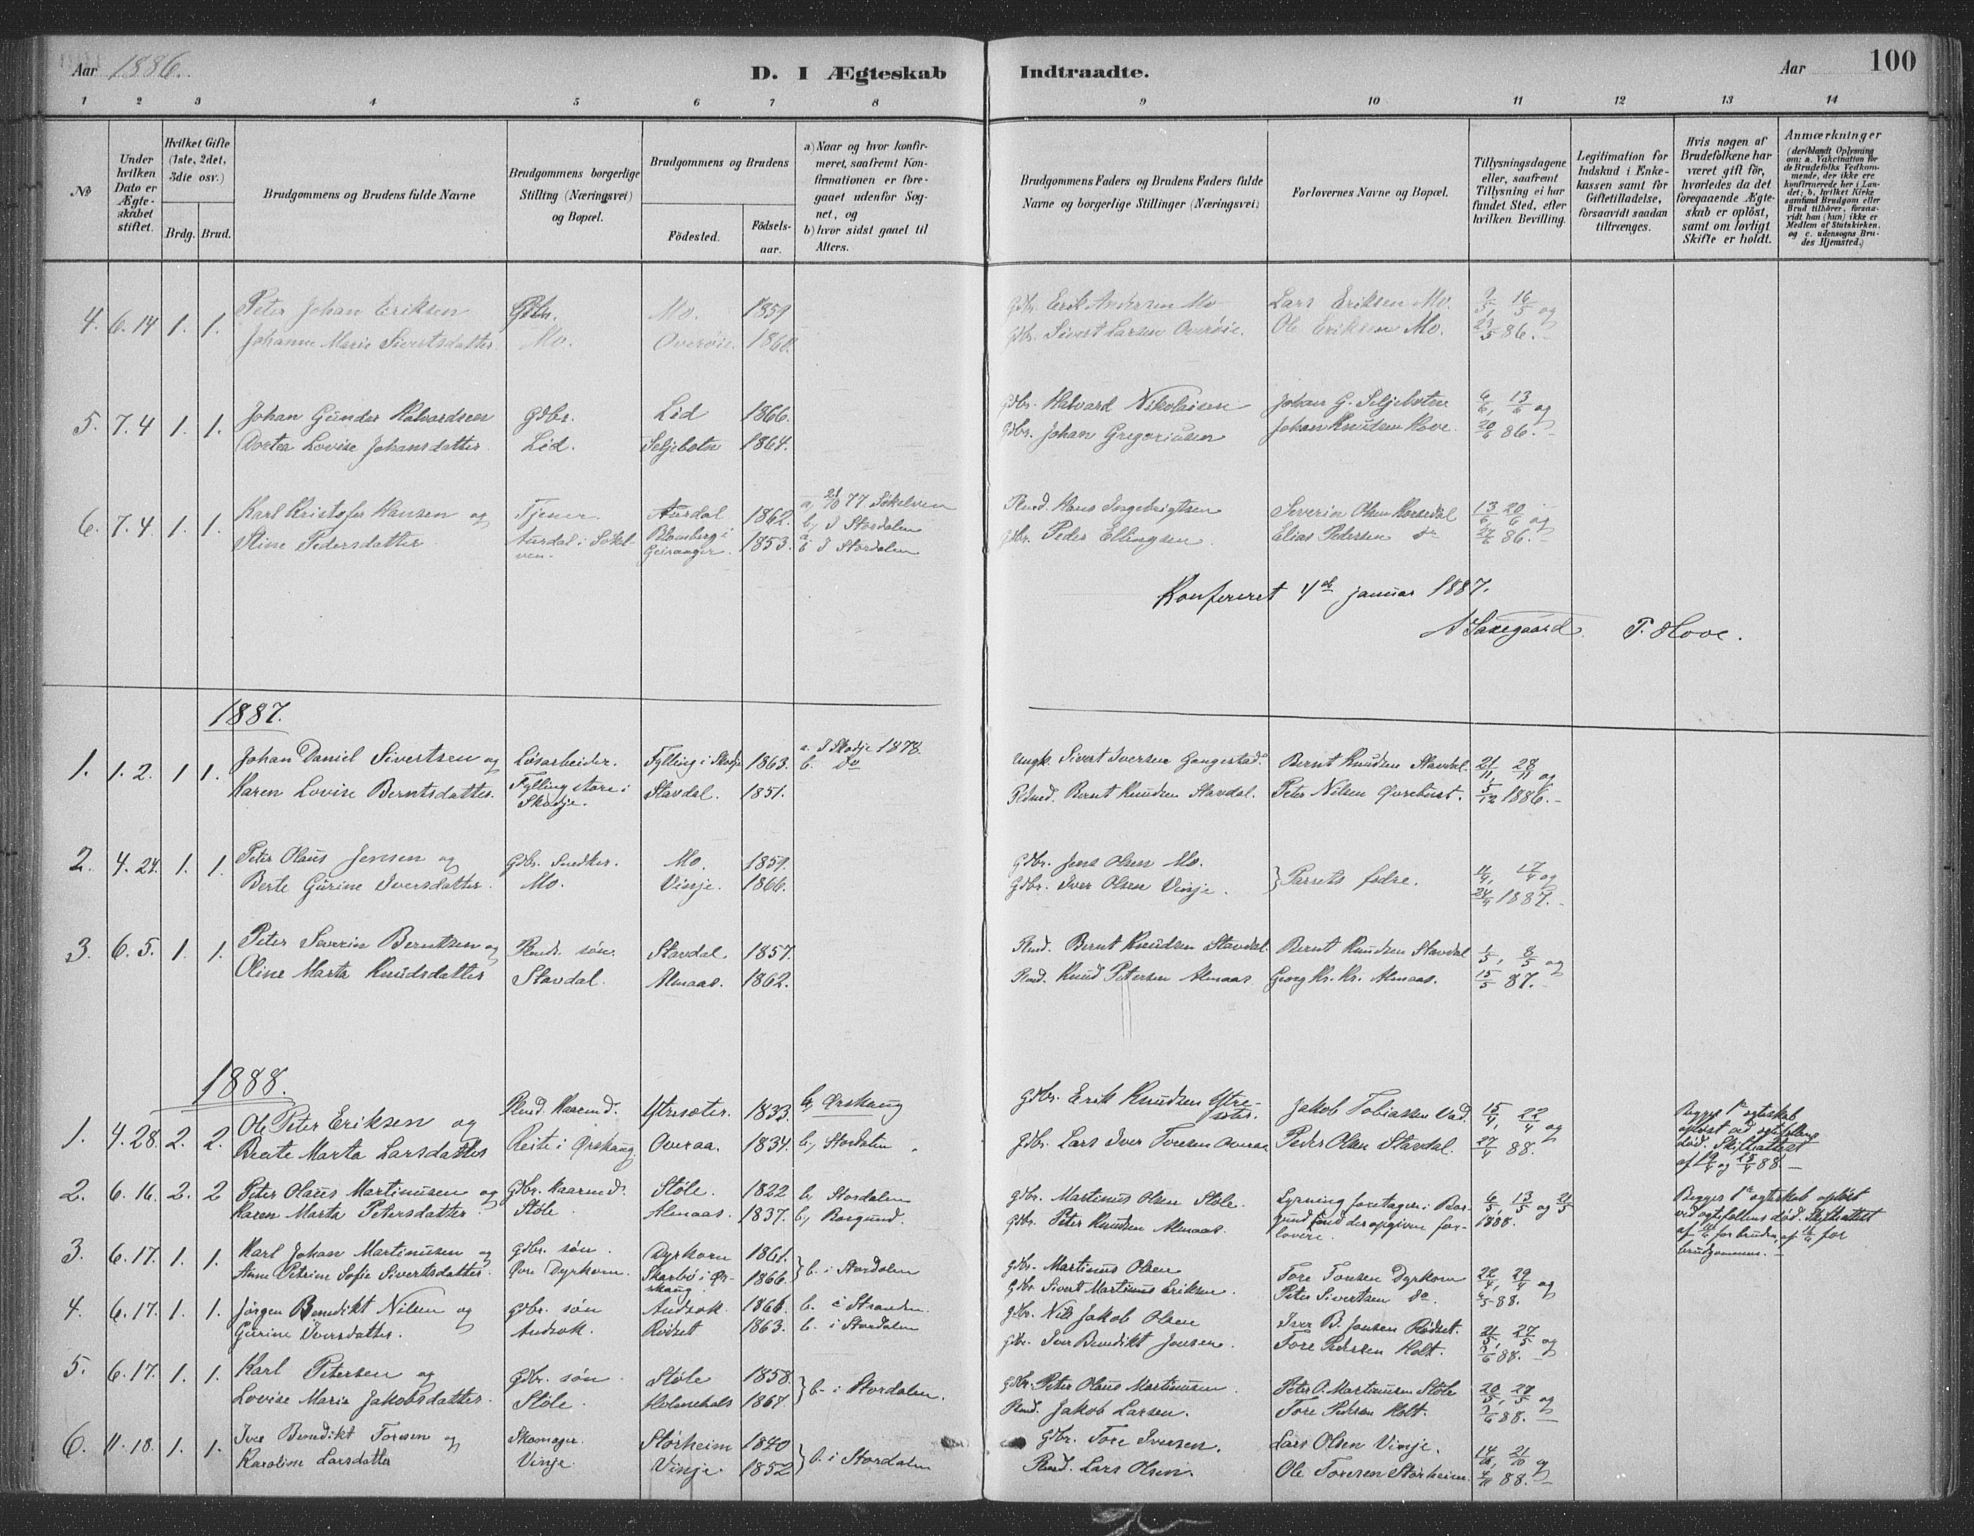 Aar 1886.
D. I Ægteskab Indtraadte.
Aar 100
1 2 3 4 5 6 7 8 9 10 11 12 13 14
№
Under hvilken Dato er Ægteskabet stiftet.
Hvilket Gifte (1ste, 2det, 3die osv.)
Brdg. Brud.
Brudgommens og Brudens fulde Navne
Brudgommens borgerlige Stilling (Næringsvei) og Bopæl.
Brudgommens og Brudens
Fødested. Fødselsaar.
a) Naar og hvor konfirmeret, saafremt Konfirmationen er foregaaet udenfor Sognet, og
b) hvor sidst gaaet til Alters.
Brudgommens Faders og Brudens Faders fulde Navne og borgerlige Stillinger (Næringsvei)
Forlovernes Navne og Bopæl.
Tillysningsdagene eller, saafremt Tillysning ei har fundet Sted, efter hvilken Bevilling.
Legitimation for Indskud i Enkekassen samt for Giftetilladelse, forsaavidt saadan tiltrænges.
Hvis nogen af Brudefolkene har været gift før, hvorledes da det foregaaende Ægteskab er opløst, samt om lovligt Skifte er holdt.
Anmærkninger (deriblandt Oplysning om: a. Vakcination for de Brudefolks Vedkommende, der ikke ere konfirmerede her i Landet; b. hvilket Kirkesamfund Brudgom eller Brud tilhører, forsaavidt han (hun) ikke er Medlem af Statskirken. og c. udensogns Brudes Hjemsted.)
4. 6.14 1. 1. Peter Johan Eriksen Gdbr. Mo. 1859 Gdbr. Erik Andersen Mo Lars Eriksen Mo. 9/5, 16/5 og
Johanne Marie Sivertsdatter. Mo. Overøie. 1860. Gdbr. Sivert Larsen Overøie. Ole Eriksen Mo. 23/5 86.
5. 7.4 1. 1. Johan Gunder Halvardsen Gdbr. Lid 1866. Gdbr. Halvard Nikolaisen Johan G. Seljebotn 6/6, 13/6 og
Dortea Lovise Johansdatter. Lid. Seljebotn 1864. Gdbr. Johan Gregoriussen Johan Knudsen Hove. 20/6 86.
6. 7.4 1. 1. Karl Kristofer Hansen og Tjener Aursdal 1862. b, I Stordalen Hans Ingebrigtsen Severin Olsen 13/6 20/6 og
Stine Pedersdatter. Aursdal i Søkelven. Blomberg i Geiranger 1853. I Stordalen Gdbr. Peder Ellingsen Elias Pedersen do 27/6 86.
Konfereret 4de januar 1887.
P. Hove.
1887.
1. 1.2. 1 1. Johan Daniel Sivertsen og Løsarbeider. Fylling i Skodje 1863. a. I Skodje 1878. b. do Sivert Iversen Gangestad. Bernt Knudsen Stavdal. 21/11, 28/11 og
Karen Lovise Berntsdatter. Fylling store i Skodje. Stavdal. 1851. Bernt Knudsen Stavdal. Peter Nilsen Øvrebust. 5/12 1886.
2. 4.24. 1. 1. Peter Olaus Jensen og Gdbr. Snedker. Mo. 1859. Gdbr. Jens Olsen Mo. Parrets fædre. 11/4, 17/4 og
Berte Gurine Iversdatter. Mo. Vinje. 1866. Gdbr. Iver Olsen Vinje. 24/4 1887.
3. 6.5. 1. 1. Peter Severin Berntsen og søn. Stavdal. 1857. Bernt Knudsen Stavdal. Bernt Knudsen Stavdal 1/5, 8/5 og
Oline Marta Knudsdatter Stavdal. Almaas. 1862. Knud Petersen Almaas Georg Kr. Kr. Almaas. 15/5 87.
1888.
1. 4.28. 2. 2. Ole Peter Eriksen og Kaarmd. Ytresæter. 1833. b, Ørskoug Gdbr. Erik Knudsen Ytresæter. Jakob Tobiassen Vad. 15/4, 22/4 og Begges 1ste ægteskab opløst ved ægtefællens død. Skifteattest
Berte Marta Larsdatter Reite i Ørskoug Overaa. 1834. b, Stordalen Gdbr. Lars Iver Toresen Overaa Peder Olsen Stavdal. 27/4 88.
2. 6.16. 2. 2 Peter Olaus Martinusen og Gdbr. Kaarmd. Støle. 1822 b, Stordalen Gdbr. Martinus Olsen Støle. Lysning foretagen i Borgund 6/5, 13/5 og 21/5 Begges 1ste ægteskab opløst ved ægtefællens død. Skifteattest
Karen Marta Petersdatter. Støle. Almaas. 1837. b, Borgund. Gdbr. Peter Knudsen Almaas. der opgivne forlovere. 1888. for bruden, for brudgommen.
3. 6.17. 1. 1. Karl Johan Martinusen og Gdbr. søn. Dyrkorn 1861. b. i Stordalen Gdbr. Martinus Olsen Tore Toresen Dyrkorn 22/4, 29/4 og
Anne Petrine Sofie Sivertsdatter. Øvr Dyrkorn. Skarbø i Ørskoug. 1866. Gdbr. Sivert Martinus Eriksen. Peter Sivertsen do. 6/5 88.
4. 6.17. 1. 1. Jørgen Benedikt Nilsen og Gdbr. søn Andsok. 1866. b. i Stranden. Gdbr. Nils Jakob Olsen Iver B. Jensen Rødset. 21/5, 27/5 og
Gurine Iversdatter. Andsok. Rødset 1863. b. i Stordalen Gdbr. Iver Benedikt Jensen. Tore Pedersen Holt. 3/6 88.
5. 6.17. 1. 1. Karl Petersen og Gdbr. søn. Støle 1858. b. i Stordalen. Gdbr. Peter Olaus Martinusen Peter O. Martinusen Støle 20/5, 27/5 og
Lovise Marie Jakobsdatter. Støle. 1867 Jakob Larsen. Tore Pedersen Holt. 3/6 88.
6. 11.18. 1. 1. Iver Benedikt Toresen og Skomager. Størheim 1840 b. i Stordalen Gdbr. Tore Iversen. Lars Olsen Vinje. 14/10, 21/10 og
Karoline Larsdatter Vinje. Vinje. 1852 Lars Olsen. Ole Toresen Størheim. 4/11 88.